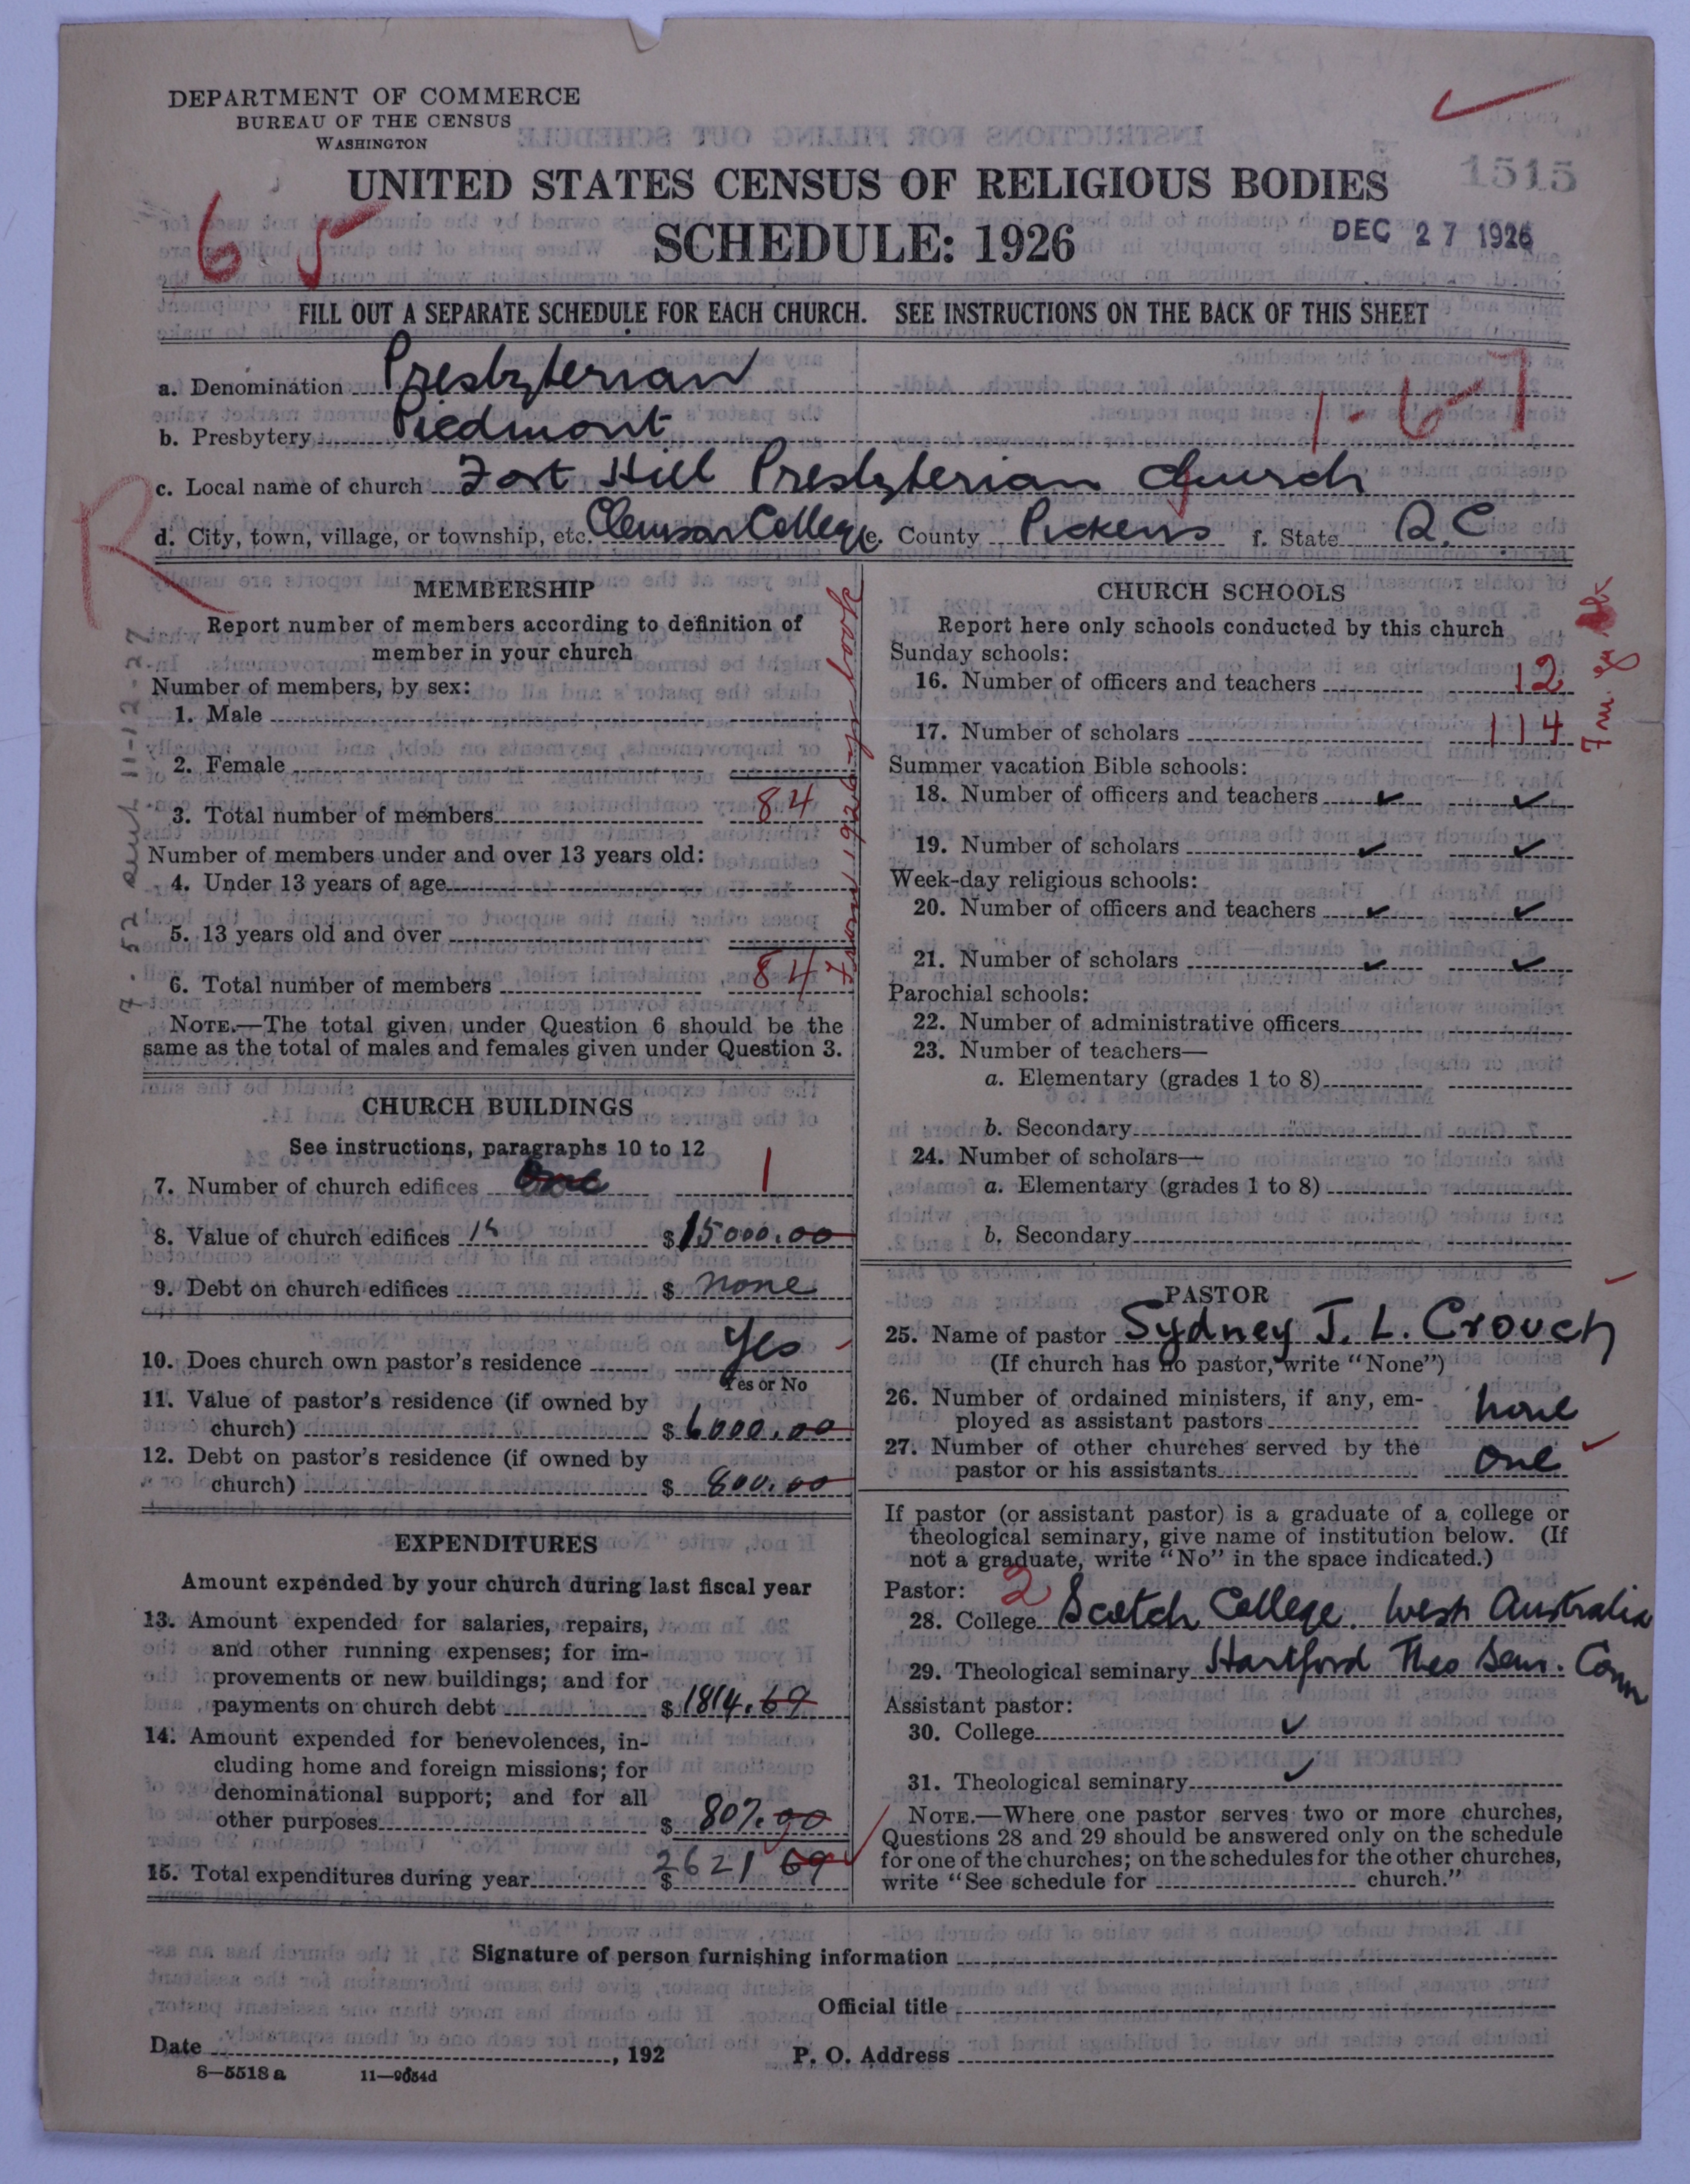 DEPARTMENT OF COMMERCE
BUREAU OF THE CENSUS
WASHINGTON
UNITED STATES CENSUS OF RELIGIOUS BODIES
1515
6 5
SCHEDULE: 1926
DEC 27 1926
FILL OUT A SEPARATE SCHEDULE FOR EACH CHURCH. SEE INSTRUCTIONS ON THE BACK OF THIS SHEET
a. Denomination Presbyterian
1-6-7
b. Presbytery Piedmont
R
c. Local name of church Fort Hill Presbyterian Church
d. City, town, village, or township, etc. Clemson College e. County Pickens f. State S.C.
MEMBERSHIP
Report number of members according to definition of
member in your church
Number of members, by sex:
1. Male
2. Female
3. Total number of members 84
Number of members under and over 13 years old:
4. Under 13 years of age
5. 13 years old and over
6. Total number of members 84
from 1926 yr book
NOTE.—The total given under Question 6 should be the
same as the total of males and females given under Question 3.
CHURCH BUILDINGS
See instructions, paragraphs 10 to 12
7. Number of church edifices One 1
8. Value of church edifices 15 $15000.00
9. Debt on church edifices $ none
10. Does church own pastor's residence Yes
Yes or No
11. Value of pastor's residence (if owned by
church) $6000.00
12. Debt on pastor's residence (if owned by
church) $ 800.00
EXPENDITURES
Amount expended by your church during last fiscal year
13. Amount expended for salaries, repairs,
and other running expenses; for im-
provements or new buildings; and for
payments on church debt $1814.69
14. Amount expended for benevolences, in-
cluding home and foreign missions; for
denominational support; and for all
other purposes $ 807.00
15. Total expenditures during year $ 2621 69
CHURCH SCHOOLS
Report here only schools conducted by this church
Sunday schools:
16. Number of officers and teachers 12
17. Number of scholars 114
Summer vacation Bible schools:
18. Number of officers and teachers
19. Number of scholars
Week-day religious schools:
20. Number of officers and teachers
21. Number of scholars
Parochial schools:
22. Number of administrative officers
23. Number of teachers—
a. Elementary (grades 1 to 8)
b. Secondary
24. Number of scholars—
a. Elementary (grades 1 to 8)
b. Secondary
PASTOR
25. Name of pastor Sydney J. L. Crouch
(If church has no pastor, write "None")
26. Number of ordained ministers, if any, em-
ployed as assistant pastors none
27. Number of other churches served by the
pastor or his assistants One
If pastor (or assistant pastor) is a graduate of a college or
theological seminary, give name of institution below. (If
not a graduate, write "No" in the space indicated.)
Pastor: 2
28. College Scotch College. West Australia
29. Theological seminary Hartford Theo Sem. Conn
Assistant pastor:
30. College
31. Theological seminary
NOTE.—Where one pastor serves two or more churches,
Questions 28 and 29 should be answered only on the schedule
for one of the churches; on the schedules for the other churches,
write "See schedule for church."
Signature of person furnishing information
Official title
Date , 192
P. O. Address
8—5518 a 11—9054d